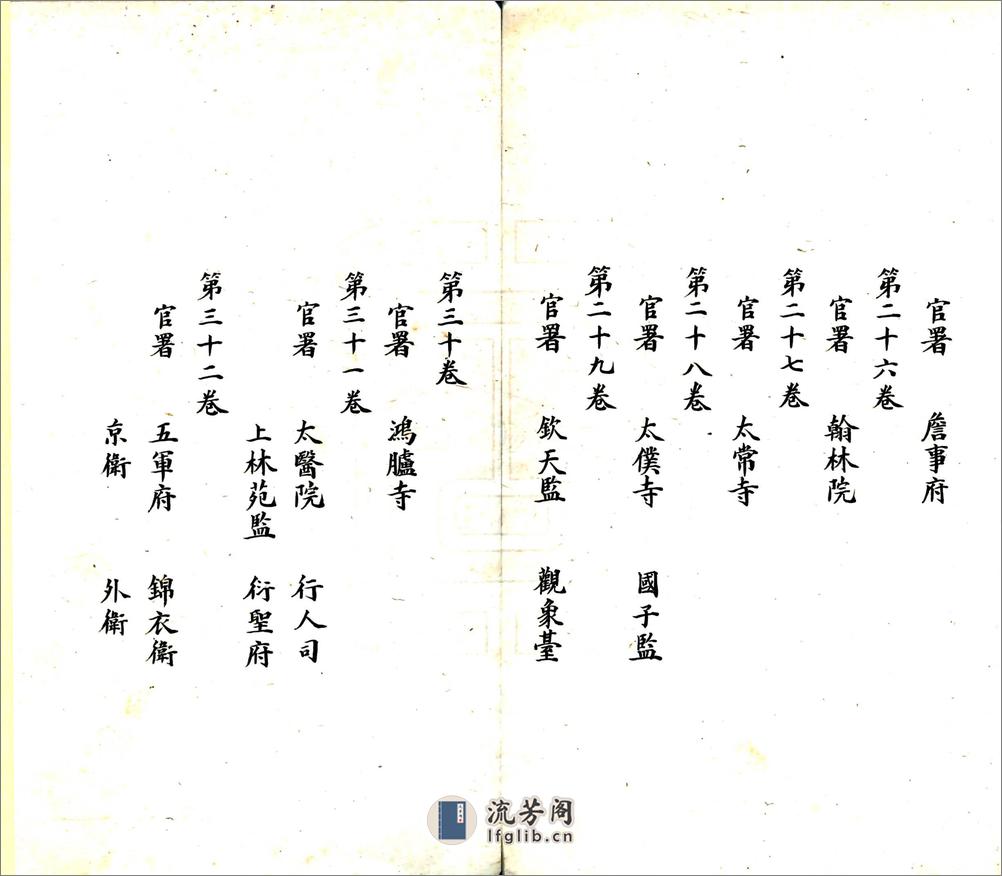 官署　詹事府
第二十六卷
官署　翰林院
第二十七卷
官署　太常寺
第二十八卷
官署　太僕寺　國子監
第二十九卷
官署　欽天監　觀象臺
第三十卷
官署　鴻臚寺
第三十一卷
官署　太醫院　行人司
上林苑監　衍聖府
第三十二卷
官署　五軍府　錦衣衛
京衛　外衛
流芳阁
lfglib.cn